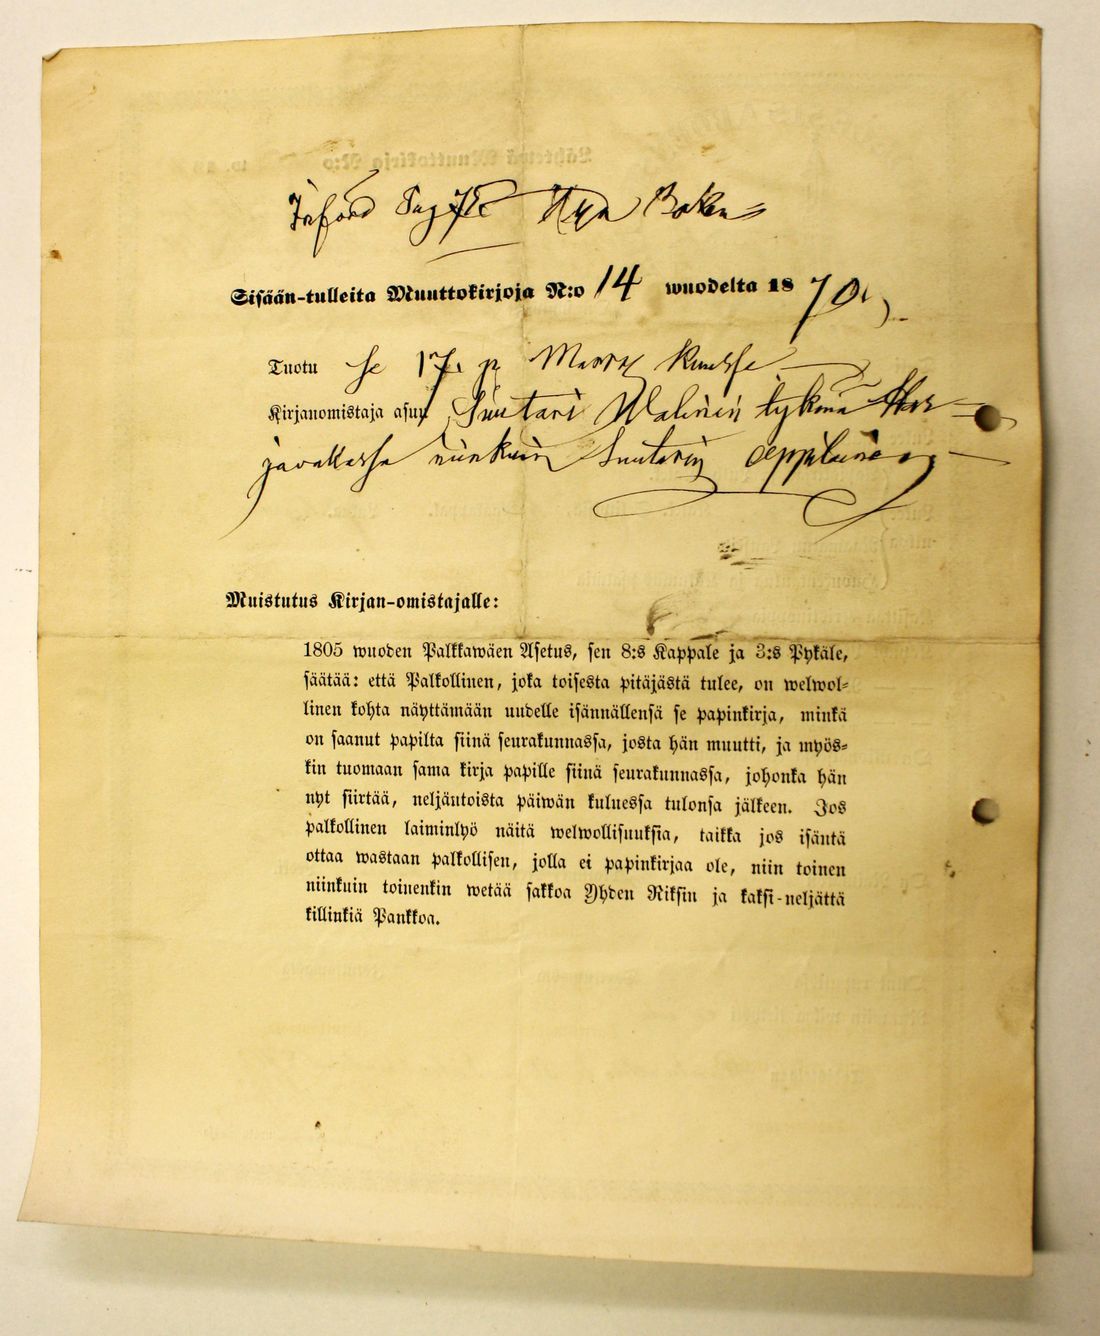 Införd Pag 78 Nya Boken
Sisään-tulleita Muuttokirjoja N:o 14 wuodelta 1870.
Tuotu se 17. p Marras kuussa
Kirjanomistaja asuu Suutari Malinin tykönä Har-
javallassa niinkuin Suutarin oppilainen
Muistutus Kirjan-omistajalle:
1805 wuoden Palkkawäen Asetus, sen 8:s Kappale ja 3:s Pykäle,
säätää: että Palkollinen, joka toisesta pitäjästä tulee, on welwol-
linen kohta näyttämään uudelle isännällensä se papinkirja, minkä
on saanut papilta siinä seurakunnassa, josta hän muutti, ja myös-
kin tuomaan sama kirja papille siinä seurakunnassa, johonka hän
nyt siirtää, neljäntoista päiwän kuluessa tulonsa jälkeen. Jos
palkollinen laiminlyö näitä welwollisuuksia, taikka jos isäntä
ottaa wastaan palkollisen, jolla ei papinkirjaa ole, niin toinen
niinkuin toinenkin wetää sakkoa Yhden Riksin ja kaksi-neljättä
killinkiä Pankkoa.